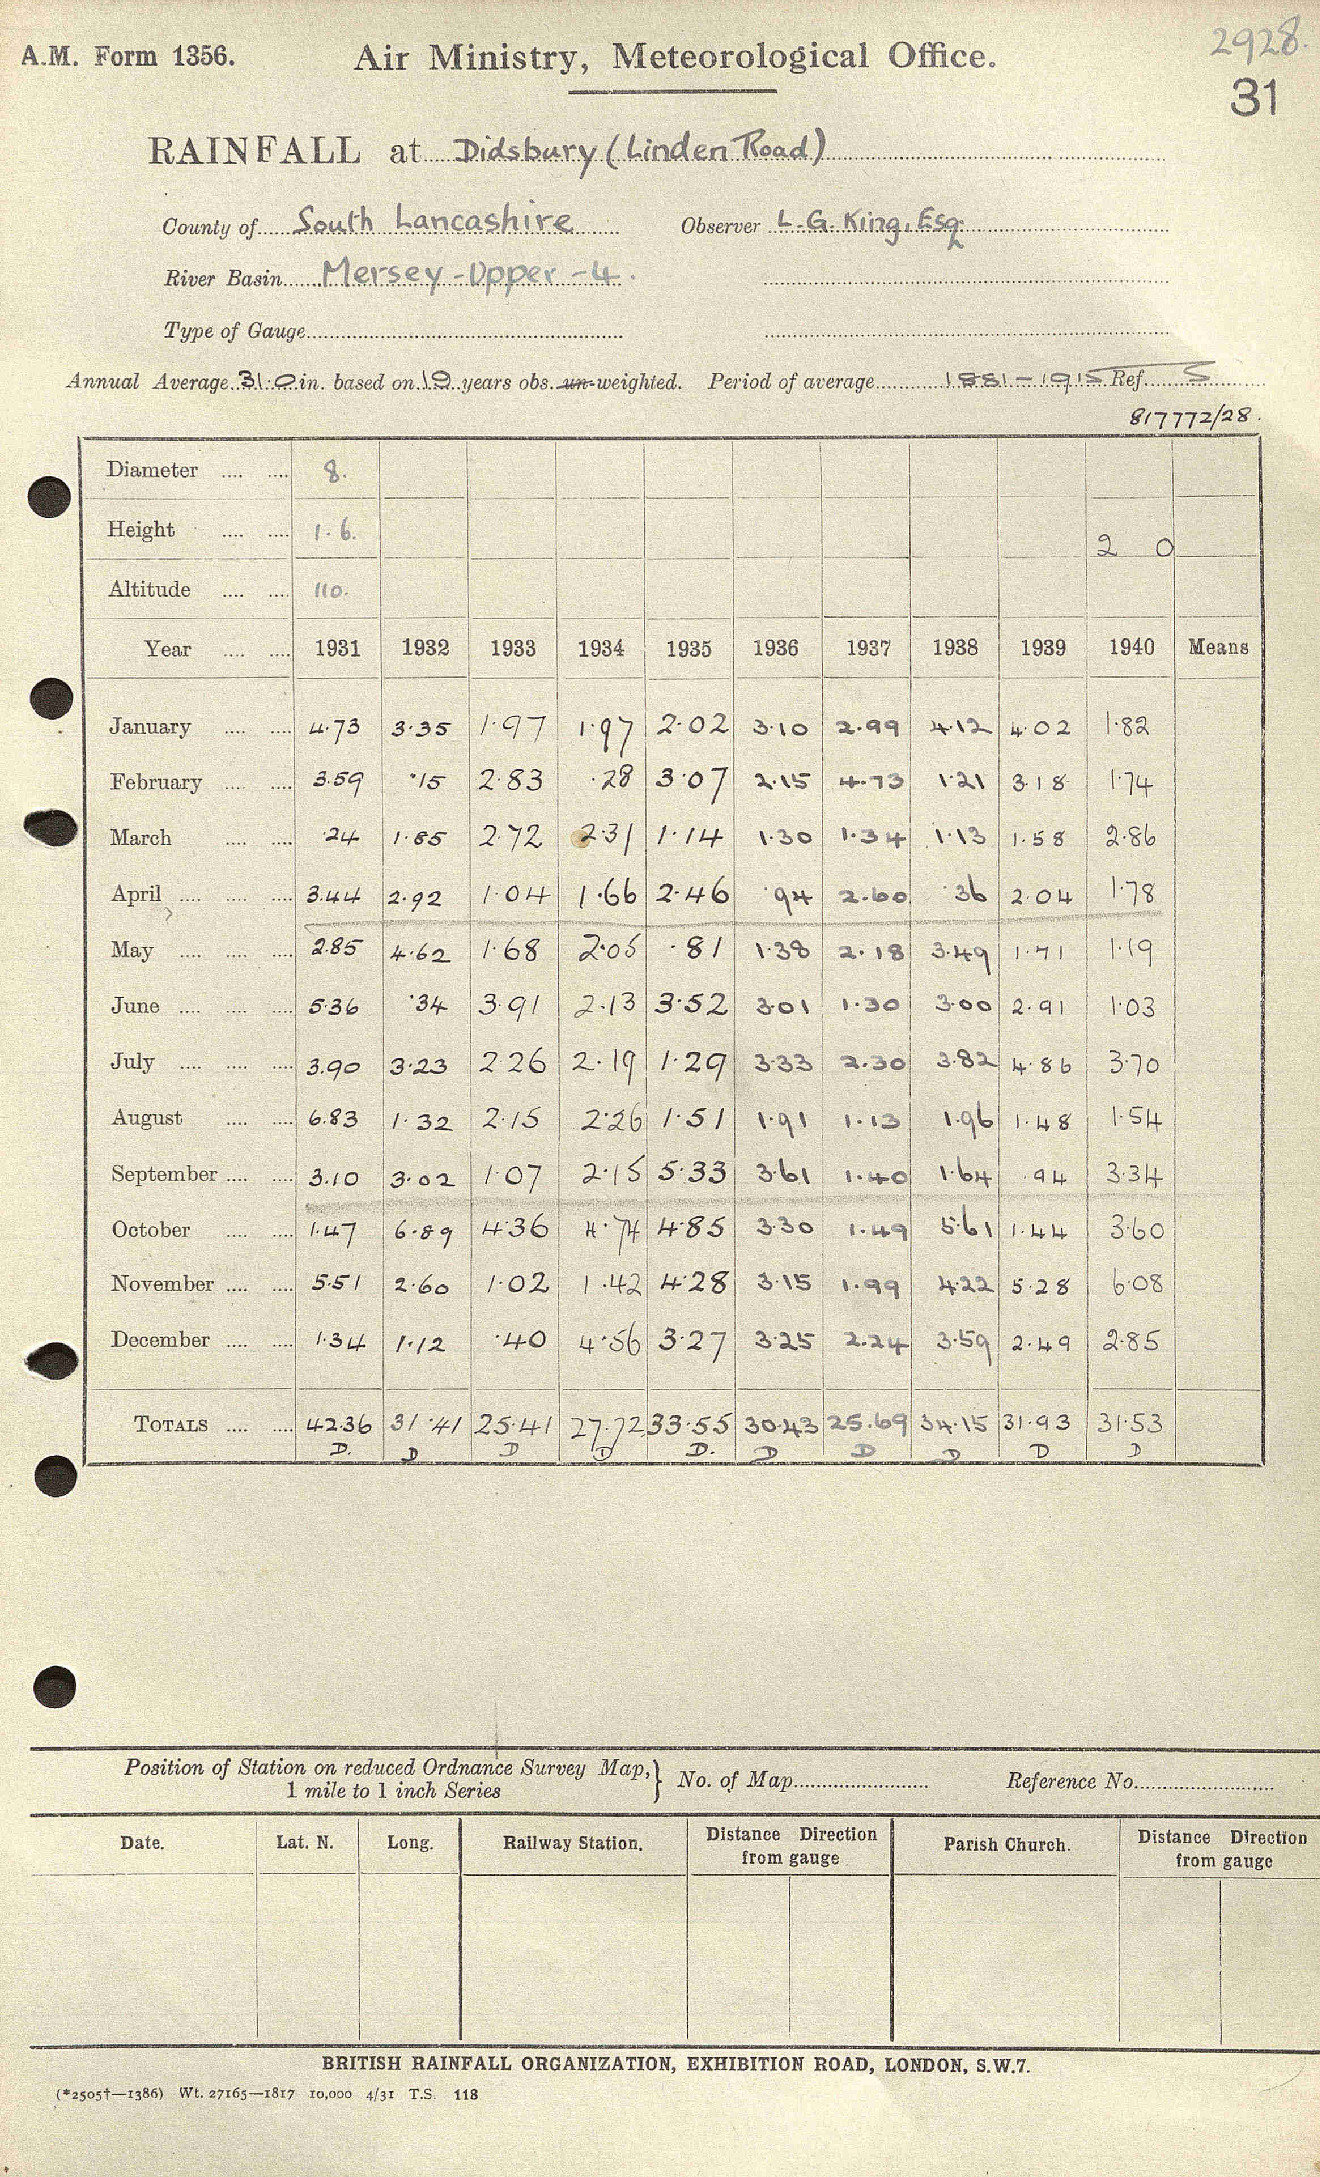 2928.
A.M. Form 1356. Air Ministry, Meteorological Office.
31
RAINFALL at Didsbury (Linden Road)
County of South Lancashire Observer L.G. King, Esq
River Basin Mersey - Upper - 4.
Type of Gauge
Annual Average 31.0 in. based on 19 years obs. un-weighted. Period of average 1881-1915 Ref. S
817772/28.
Diameter 8.
Height 1.6. 2 0
Altitude 110.
Year 1931 1932 1933 1934 1935 1936 1937 1938 1939 1940 Means
January 4.73 3.35 1.97 1.97 2.02 3.10 2.99 4.12 4.02 1.82
February 3.59 .15 2.83 .28 3.07 2.15 4.73 1.21 3.18 1.74
March .24 1.85 2.72 2.31 1.14 1.30 1.34 1.13 1.58 2.86
April 3.44 2.92 1.04 1.66 2.46 .94 2.60 .36 2.04 1.78
?
May 2.85 4.62 1.68 2.05 .81 1.38 2.18 3.49 1.71 1.19
June 5.36 .34 3.91 2.13 3.52 3.01 1.30 3.00 2.91 1.03
July 3.90 3.23 2.26 2.19 1.29 3.33 2.30 3.82 4.86 3.70
August 6.83 1.32 2.15 2.26 1.51 1.91 1.13 1.96 1.48 1.54
September 3.10 3.02 1.07 2.15 5.33 3.61 1.40 1.64 .94 3.34
October 1.47 6.89 4.36 4.74 4.85 3.30 1.49 5.61 1.44 3.60
November 5.51 2.60 1.02 1.42 4.28 3.15 1.99 4.22 5.28 6.08
December 1.34 1.12 .40 4.56 3.27 3.25 2.24 3.59 2.49 2.85
TOTALS 42.36 31.41 25.41 27.72 33.55 30.43 25.69 34.15 31.93 31.53
D. D D D D. D D D D D
Position of Station on reduced Ordnance Survey Map, } No. of Map Reference No.
1 mile to 1 inch Series
Date. Lat. N. Long. Railway Station. Distance Direction Parish Church. Distance Direction
from gauge from gauge
BRITISH RAINFALL ORGANIZATION, EXHIBITION ROAD, LONDON, S.W.7.
(*2505†—1386) Wt. 27165—1817 10,000 4/31 T.S. 118